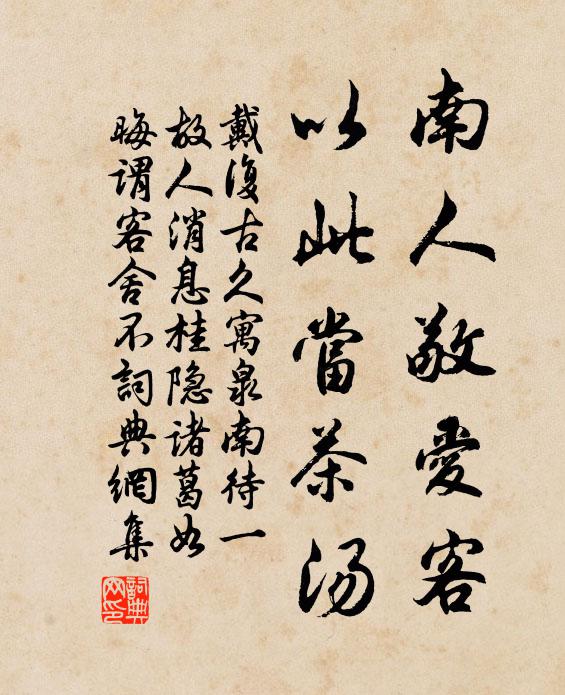 南人敬爱客
以此當茶汤
戴復古久寓泉南待一
故人消息桂隐诸葛如
晦谓客舍不詞典網集
詞典